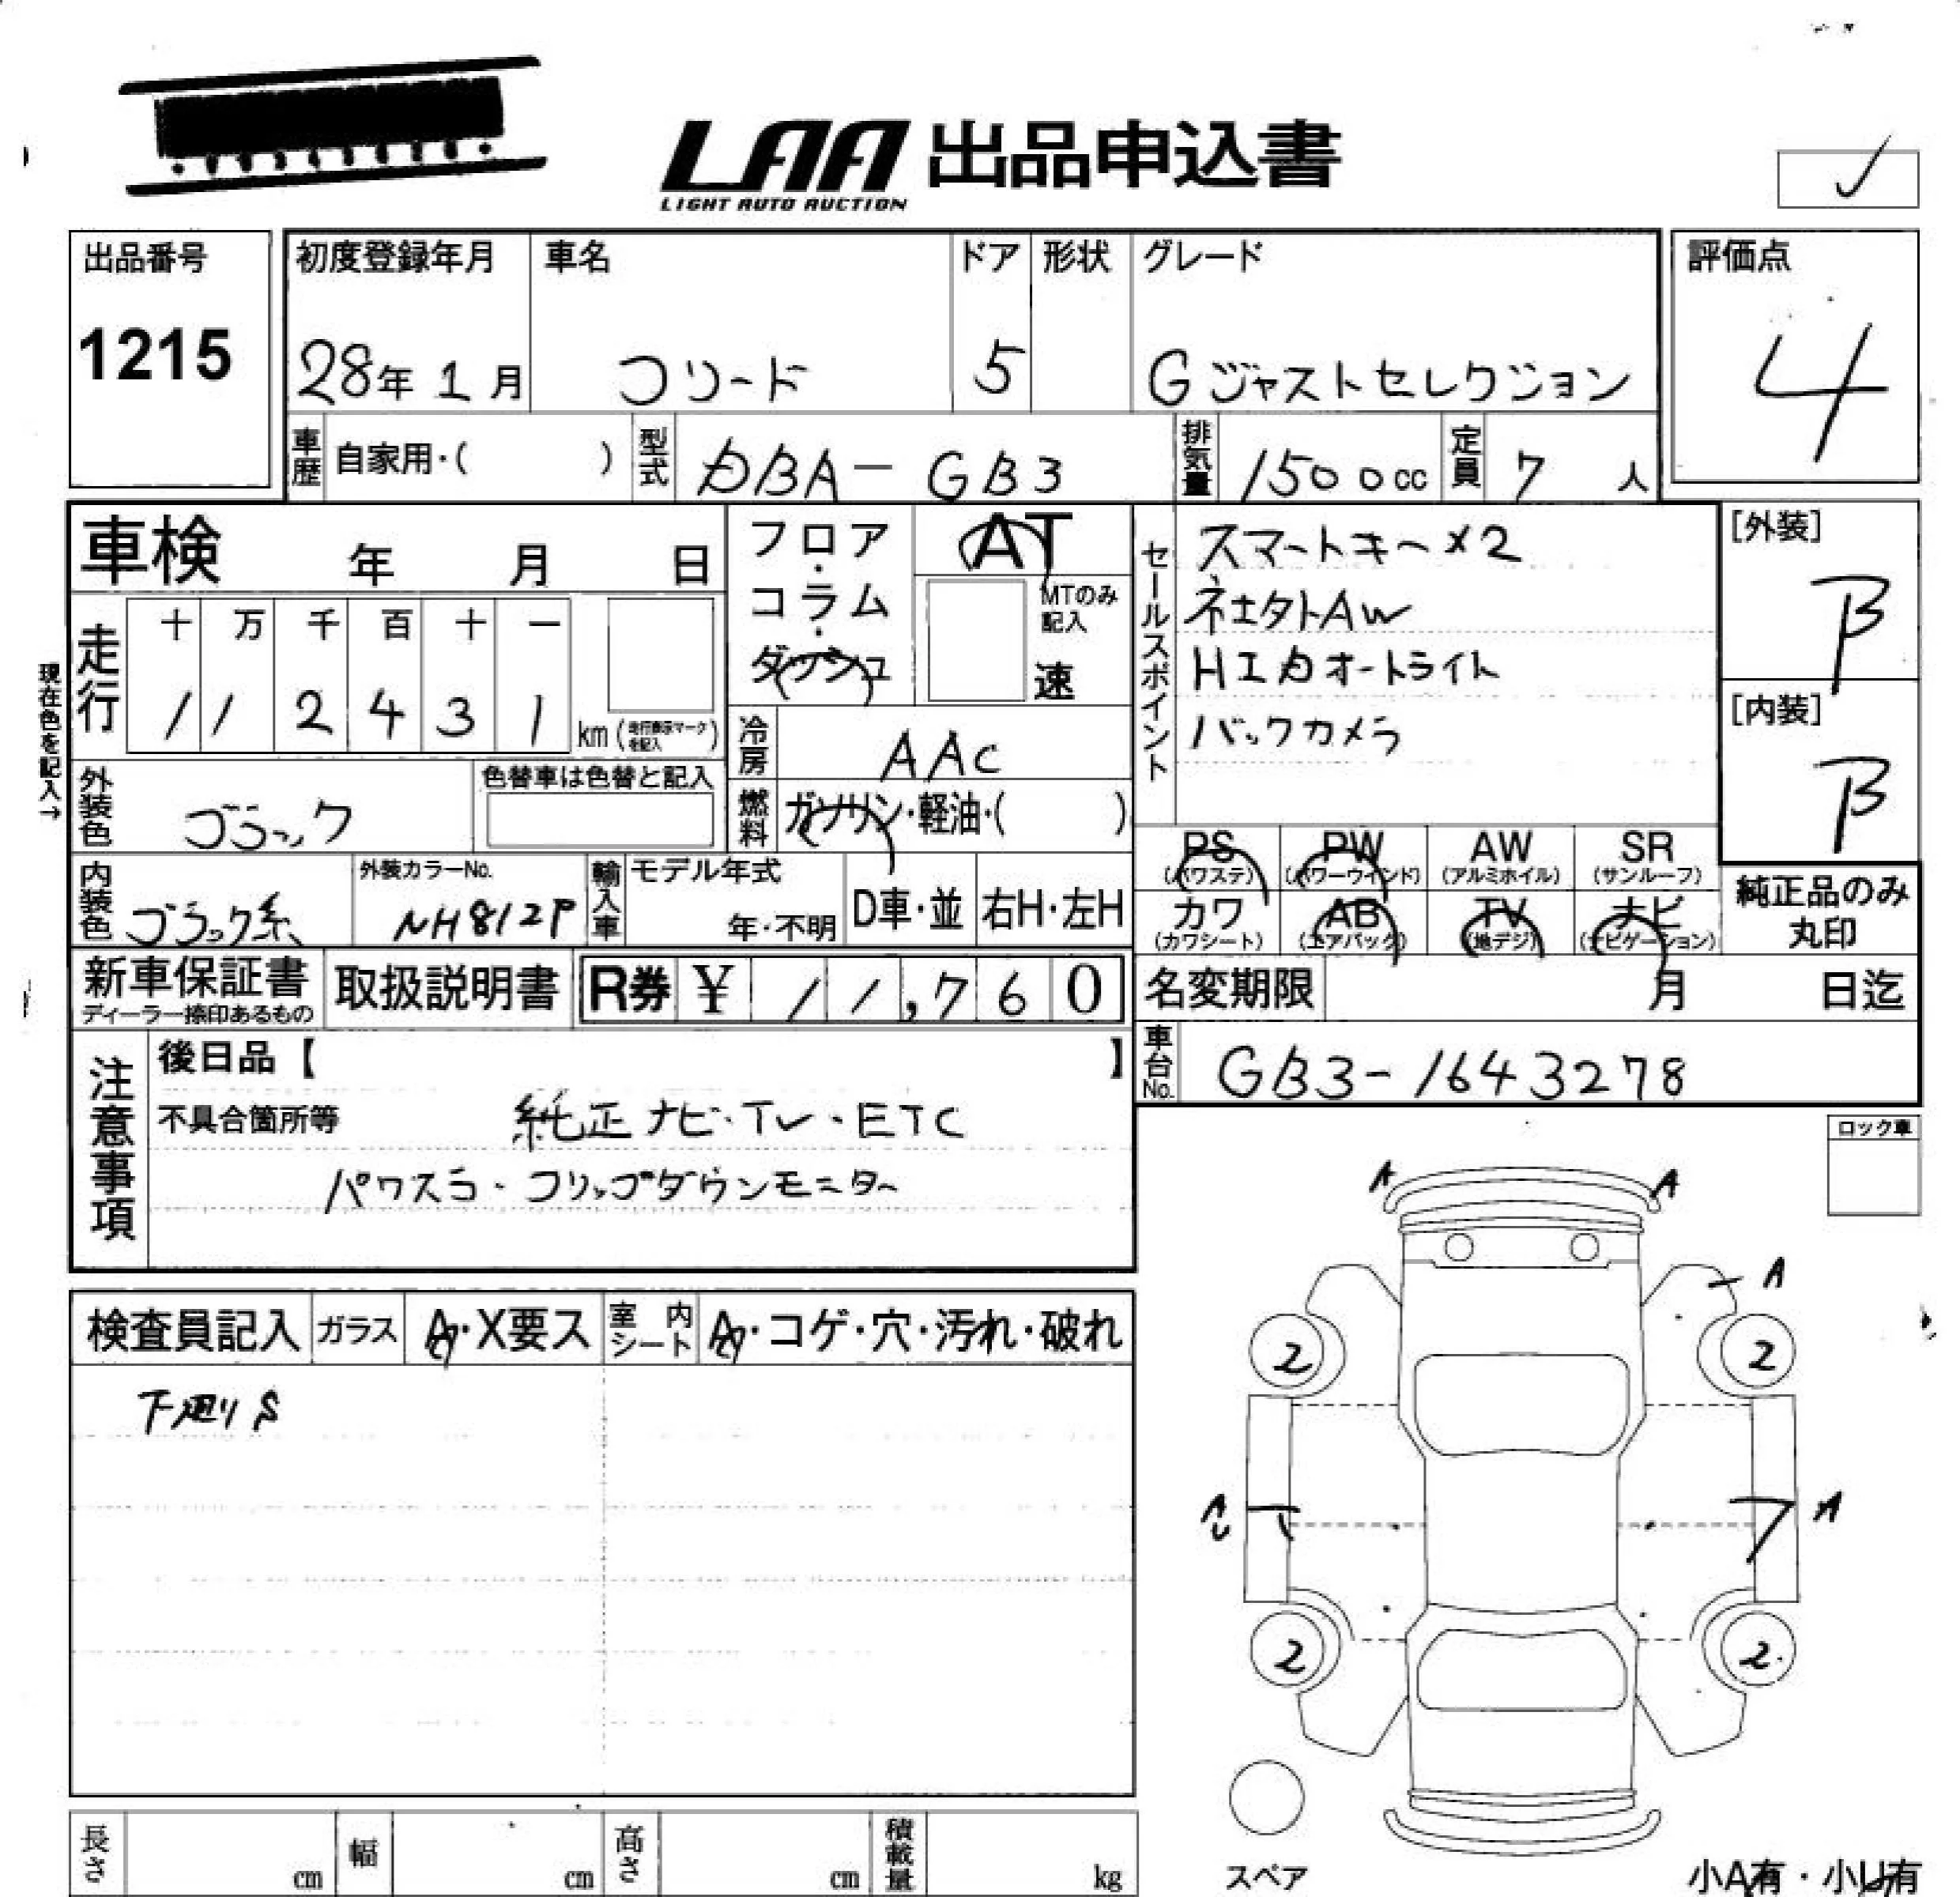 LAA 出品申込書
LIGHT AUTO AUCTION
出品番号
1215
初度登録年月
28年 1月
車名
フリード
ドア
5
形状
グレード
G ジャストセレクション
評価点
4
車歴 自家用・( )
型式 DBA-GB3
排気量 1500cc
定員 7人
車検 年 月 日
フロア・コラム・ダッシュ
AT
MTのみ記入
速
セールスポイント
スマートキー×2
HID オートライト
バックカメラ
[外装]
B
[内装]
B
現在色を記入→
走行
十 万 千 百 十 一
1 1 2 4 3 1 km (走行表示マークを記入)
冷房 AAC
外装色 ブラック
色替車は色替と記入
燃料 ガソリン・軽油・( )
PS (パワステ)
PW (パワーウインド)
AW (アルミホイル)
SR (サンルーフ)
カワ (カワシート)
AB (エアバック)
TV (地デジ)
ナビ (ナビゲーション)
純正品のみ丸印
内装色 ブラック系
外装カラーNo. NH812P
輸入車
モデル年式
年・不明
D車・並
右H・左H
新車保証書
ディーラー捺印あるもの
取扱説明書
R券 ¥ 11,760
名変期限 月 日迄
車台No. GB3-1643278
注意事項
後日品【 】
不具合箇所等 純正ナビ・TV・ETC
パワスラ・フリップダウンモニター
ロック車
検査員記入
ガラス A・X要ス
室内シート A・コゲ・穴・汚れ・破れ
下廻りS
A A
A
2 2
A
U
A
2 2
スペア
長さ cm
幅 cm
高さ cm
積載量 kg
小A有・小U有